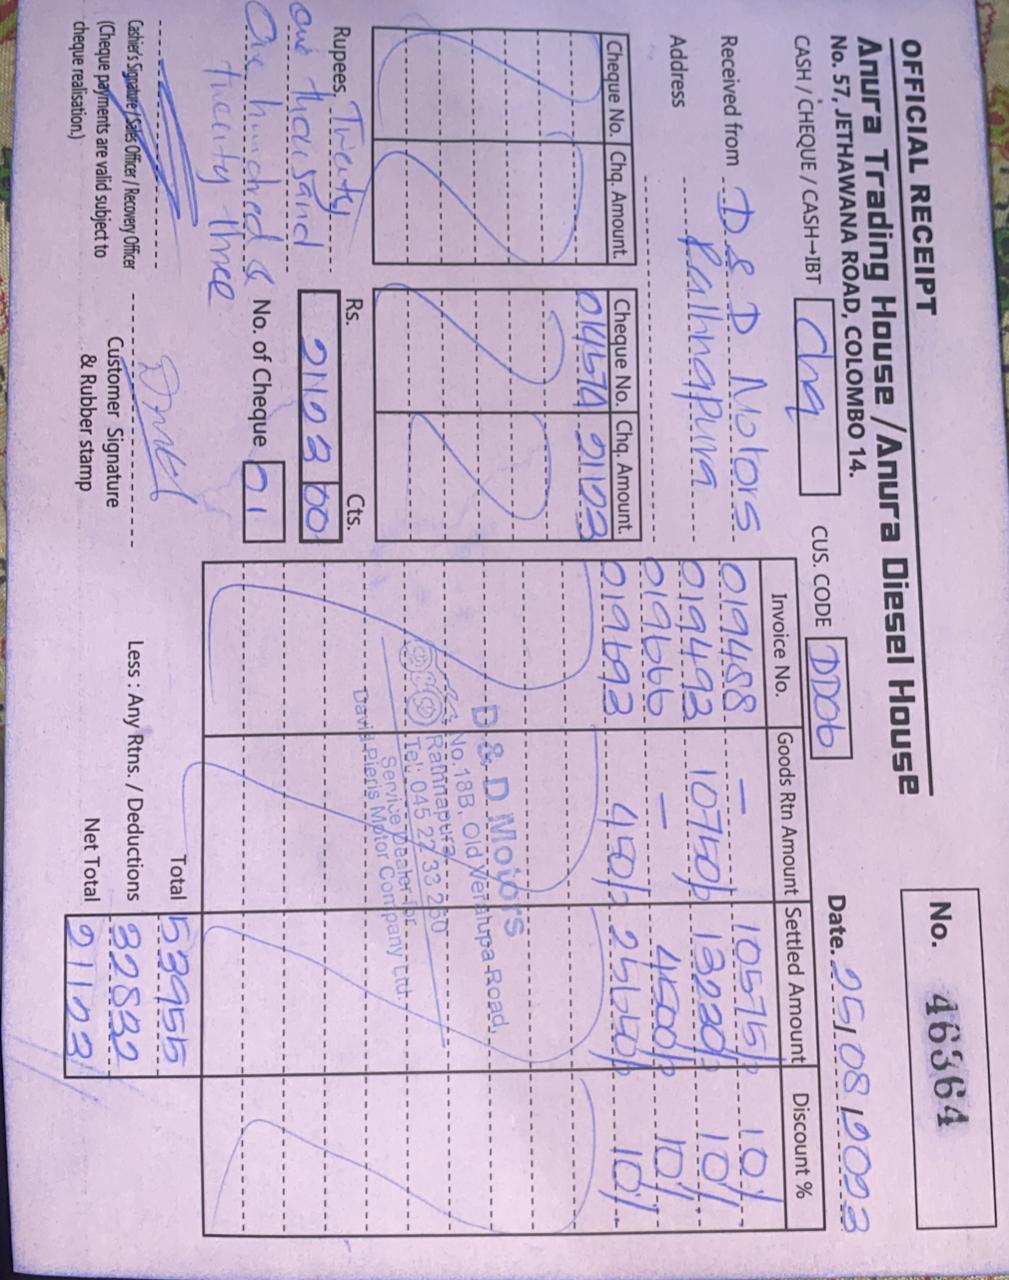 OFFICIAL RECEIPT
No. 46364
Anura Trading House / Anura Diesel House
No. 57, JETHAWANA ROAD, COLOMBO 14.
CASH / CHEQUE / CASH→IBT Chq
CUS. CODE DD06
Date. 25/08/2023
Received from D & D Motors
Address Rathnapura
Cheque No. Chq. Amount. Cheque No. Chq. Amount.
21123
Rupees, Twenty
one thousand
One hundred &
twenty three
Rs. Cts.
21123 00
No. of Cheque 01
Cashier's Signature / Sales Officer / Recovery Officer
(Cheque payments are valid subject to
cheque realisation.)
Customer Signature
& Rubber stamp
Invoice No. Goods Rtn Amount Settled Amount Discount %
019488 — 10575/= 10%
019492 10750/= 13220/= 10%
019666 — 4500/= 10%
019692 450/= 25660/= 10%
D & D Motors
No. 18B, Old Veralupa Road,
Ratnapura.
Tel: 045 22 33 260
Service Dealer for
David Pieris Motor Company Ltd.
Total 53955
Less : Any Rtns. / Deductions 32832
Net Total 21123